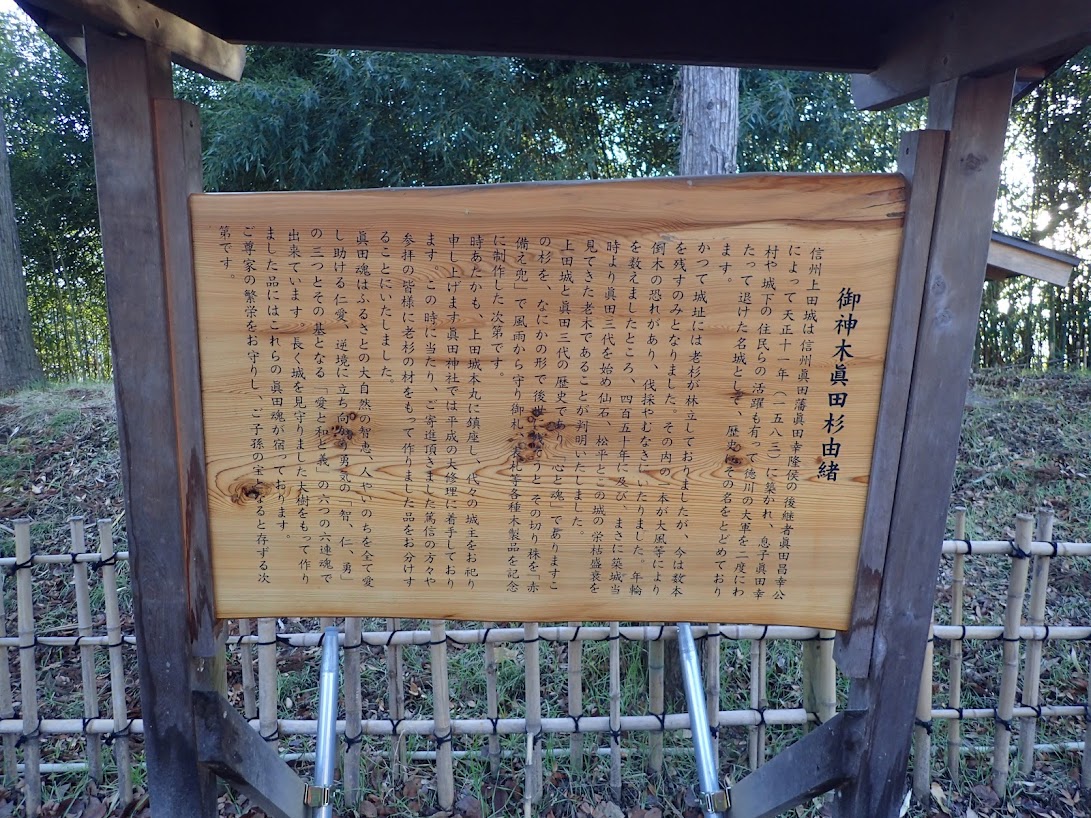 御神木眞田杉由緒
信州上田城は信州眞田藩眞田幸隆侯の後継者眞田昌幸公
によって天正十一年(一五八三)に築かれ、息子眞田幸
村や城下の住民らの活躍も有って徳川の大軍を二度にわ
たって退けた名城として、歴史にその名をとどめており
ます。
かつて城址には老杉が林立しておりましたが、今は数本
を残すのみとなりました。その内の一本が大風等により
倒木の恐れがあり、伐採やむなきにいたりました。年輪
を数えましたところ、四百五十年に及び、まさに築城当
時より眞田三代を始め仙石、松平とこの城の栄枯盛衰を
見てきた老木であることが判明いたしました。
上田城と眞田三代の歴史であり「心と魂」でありますこ
の杉を、なにかの形で後世に残そうと、その切り株を『赤
備え兜』で風雨から守り御札、表札等各種木製品を記念
に制作した次第です。
時あたかも、上田城本丸に鎮座し、代々の城主をお祀り
申し上げます眞田神社では平成の大修理に着手しており
ます。この時に当たり、ご寄進頂きました篤信の方々や
参拝の皆様に老杉の材をもって作りました品をお分けす
ることにいたしました。
眞田魂はふるさとの大自然の智恵、人やいのちを全て愛
し助ける仁愛、逆境に立ち向かう勇気の「智、仁、勇」
の三つとその基となる「愛と和と義」の六つの六連魂で
出来ています。長く城を見守りました大樹をもって作り
ました品にはこれらの眞田魂が宿っております。
ご尊家の繁栄をお守りし、ご子孫の宝となると存ずる次
第です。